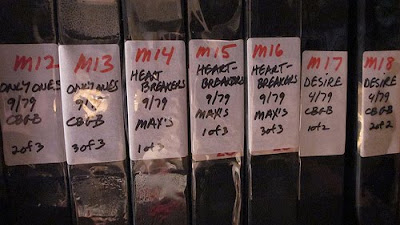 M12
ONLY ONES
9/79
CBGB
2 of 3
M13
ONLY ONES
9/
CBGB
3 of 3
M14
HEART
BREAKERS
9/79
MAX'S
1 of 3
M15
HEART-
BREAKERS
9/79
MAX'S
1 of 3
M16
HEART-
BREAKERS
9/79
MAX'S
3 of 3
M17
DESIRE
4/79
CBGB
1 of 2
M18
DESIRE
4/79
CBGB
2 of 2